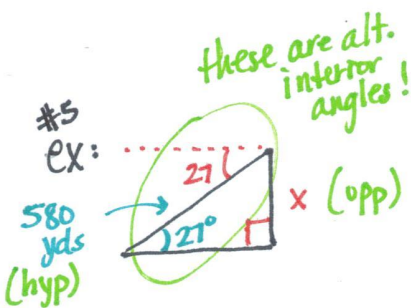 these are alt.
interior
angles!
#5
ex:
27
580
yds
(hyp)
27°
x (opp)